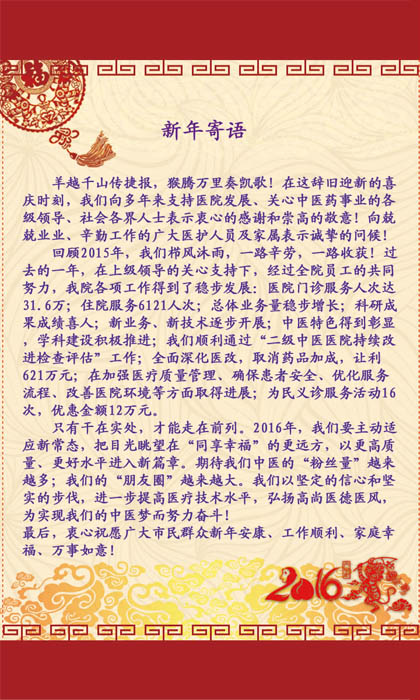 福
新年寄语
羊越千山传捷报，猴腾万里奏凯歌！在这辞旧迎新的喜
庆时刻，我们向多年来支持医院发展、关心中医药事业的各
级领导、社会各界人士表示衷心的感谢和崇高的敬意！向兢
兢业业、辛勤工作的广大医护人员及家属表示诚挚的问候！
回顾2015年，我们栉风沐雨，一路辛劳，一路收获！过
去的一年，在上级领导的关心支持下，经过全院员工的共同
努力，我院各项工作得到了稳步发展：医院门诊服务人次达
31.6万；住院服务6121人次；总体业务量稳步增长；科研成
果成绩喜人；新业务、新技术逐步开展；中医特色得到彰显
，学科建设积极推进；我们顺利通过“二级中医医院持续改
进检查评估”工作；全面深化医改，取消药品加成，让利
621万元；在加强医疗质量管理、确保患者安全、优化服务
流程、改善医院环境等方面取得进展；为民义诊服务活动16
次，优惠金额12万元。
只有干在实处，才能走在前列。2016年，我们要主动适
应新常态，把目光眺望在“同享幸福”的更远方，以更高质
量、更好水平进入新篇章。期待我们中医的“粉丝量”越来
越多；我们的“朋友圈”越来越大。我们以坚定的信心和坚
实的步伐，进一步提高医疗技术水平，弘扬高尚医德医风，
为实现我们的中医梦而努力奋斗！
最后，衷心祝愿广大市民群众新年安康、工作顺利、家庭幸
福、万事如意！
2016